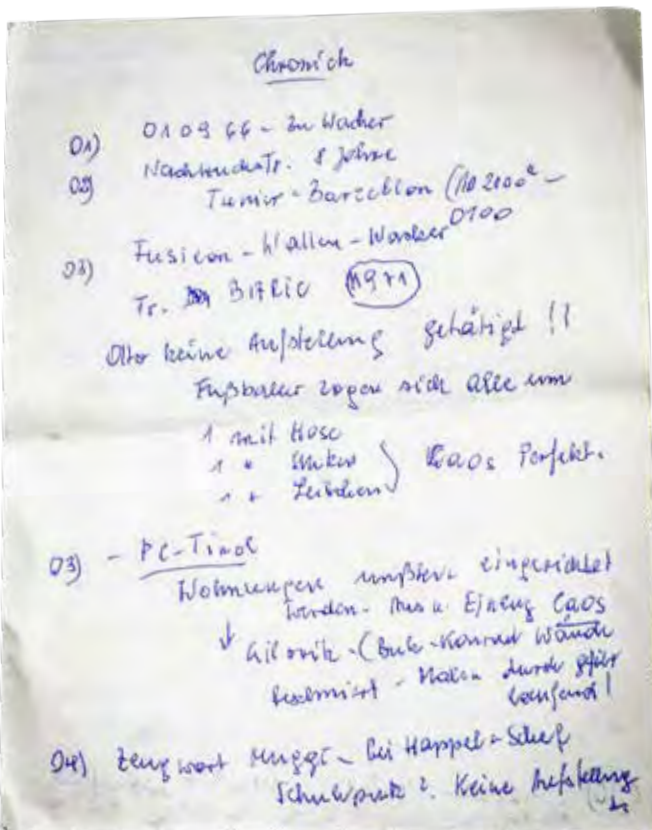 Chronick
01) 010966 - Zu Wacker
02) Nachwuchstr. 8 Jahre
Tunier - Barcellon
0100
03) Fusion - Watten - Wacker
Tr. (1971)
Otto keine Aufstellung getätigt !!
Fußballer zogen sich alle um
1 mit Hose
1 "
1 " Leibchen } Caos Perfekt.
03) - FC-Tirol
Wohnungen mußten eingerichtet
werden - Aus u. Einzug Caos
↓ - (Bub - Konrad Wände
beschmiert - Malen durchgeführt
laufend!
04) Zeugwart Muggi - Bei Happel - Schef
Schuhputz ?. Keine Aufstellung